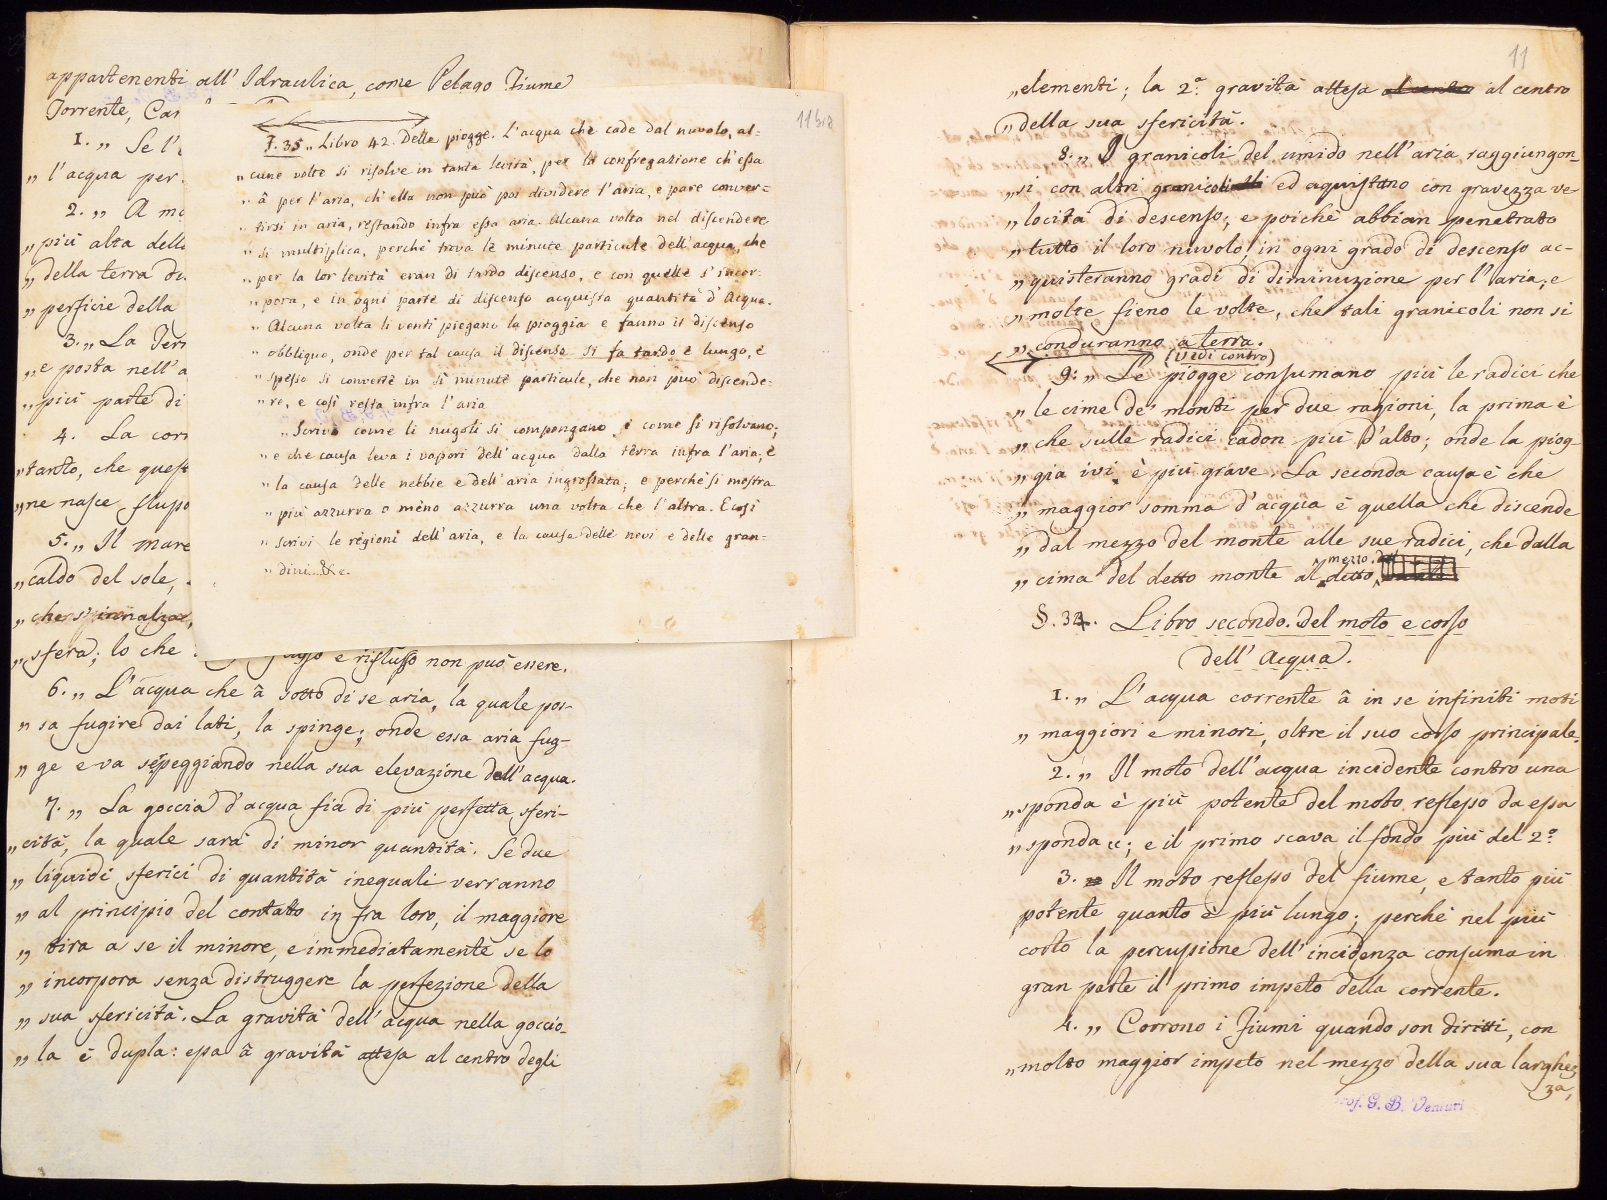 appartenenti all' Idraulica, come Pelago Fiume
Torrente, Can
1. „ Se l'
„ l'acqua per
2. „ A mo
„ più alta dell
„ della terra du
„ perficie della
3. „ La Terr
„ e posta nell'a
„ più parte di
4. La corr
„ tanto, che quest
„ ne nasce flusso
5. „ Il mare
„ caldo del sole,
„ che s'innalza,
„ sfera; lo che flusso e riflusso non può essere.
6. „ L'acqua che â sotto di se aria, la quale pos-
„ sa fugire dai lati, la spinge; onde essa aria fug-
„ ge e va serpeggiando nella sua elevazione dall'acqua.
7. „ La goccia d'acqua fia di più perfetta sferi-
„ cità, la quale sarà di minor quantità. Se due
„ liquidi sferici di quantità ineguali verranno
„ al principio del contatto in fra loro, il maggiore
„ tira a se il minore, e immediatamente se lo
„ incorpora senza distruggere la perfezione della
„ sua sfericità. La gravità dell'acqua nella goccio-
„ la è dupla: essa â gravità attesa al centro degli
11 bis
§. 35 „ Libro 42. Delle piogge. L'acqua che cade dal nuvolo, al-
„ cune volte si risolve in tanta levità, per la confregazione ch'essa
„ â per l'aria, ch'ella non può poi dividere l'aria, e pare conver-
„ tirsi in aria, restando infra essa aria. Alcuna volta nel discendere
„ si multiplica, perchè trova le minute particule dell'acqua, che
„ per la lor levità eran di tardo discenso, e con quelle s'incor-
„ pora, e in ogni parte di discenso acquista quantità d'Acqua.
„ Alcuna volta li venti piegano la pioggia e fanno il discenso
„ obbliquo, onde per tal causa il discenso si fa tardo e lungo, e
„ spesso si converte in sì minute particule, che non può discende-
„ re, e così resta infra l'aria
„ Scrivi come li nugoli si compongano, e come si risolvano;
„ e che causa leva i vapori dell'acqua dalla terra infra l'aria, e
„ la causa delle nebbie e dell'aria ingrossata; e perchè si mostra
„ più azzurra o meno azzurra una volta che l'altra. E così
„ scrivi le regioni dell'aria, e la causa delle nevi e delle gran-
„ dini &c.
11
„ elementi; la 2.ª gravità attesa al centro al centro
„ della sua sfericità.
8. „ I granicoli del umido nell'aria raggiungon-
„ si con altri granicoli ed aquistano con gravezza ve-
„ locità di descenso; e poichè abbian penetratto
„ tutto il loro nuvolo, in ogni grado di descenso ac-
„ quisteranno gradi di diminuzione per l'aria; e
„ molte fieno le volte, che tali granicoli non si
„ conduranno a terra.
(Vedi contro)
9. „ Le piogge consumano più le radici che
„ le cime de' monti per due ragioni, la prima è
„ che sulle radici cadon più d'alto; onde la piog-
„ gia ivi è più grave. La seconda causa è che
„ maggior somma d'acqua è quella che discende
„ dal mezzo del monte alle sue radici, che dalla
„ cima del detto monte al detto mezzo.
§. 34. Libro secondo. Del moto e corso
dell' Acqua.
1. „ L'acqua corrente â in se infiniti moti
„ maggiori e minori, oltre il suo corso principale.
2. „ Il moto dell'acqua incidente contro una
„ sponda è più potente del moto reflesso da essa
„ sponda; e il primo scava il fondo più del 2.º
3. Il moto reflesso del fiume, e tanto più
potente quanto è più lungo; perchè nel più
corto la percussione dell'incidenza consuma in
gran parte il primo impeto della corrente.
4. „ Corrono i Fiumi quando son diritti, con
„ molto maggior impeto nel mezzo della sua larghez-
za,
Prof. G. B. Venturi